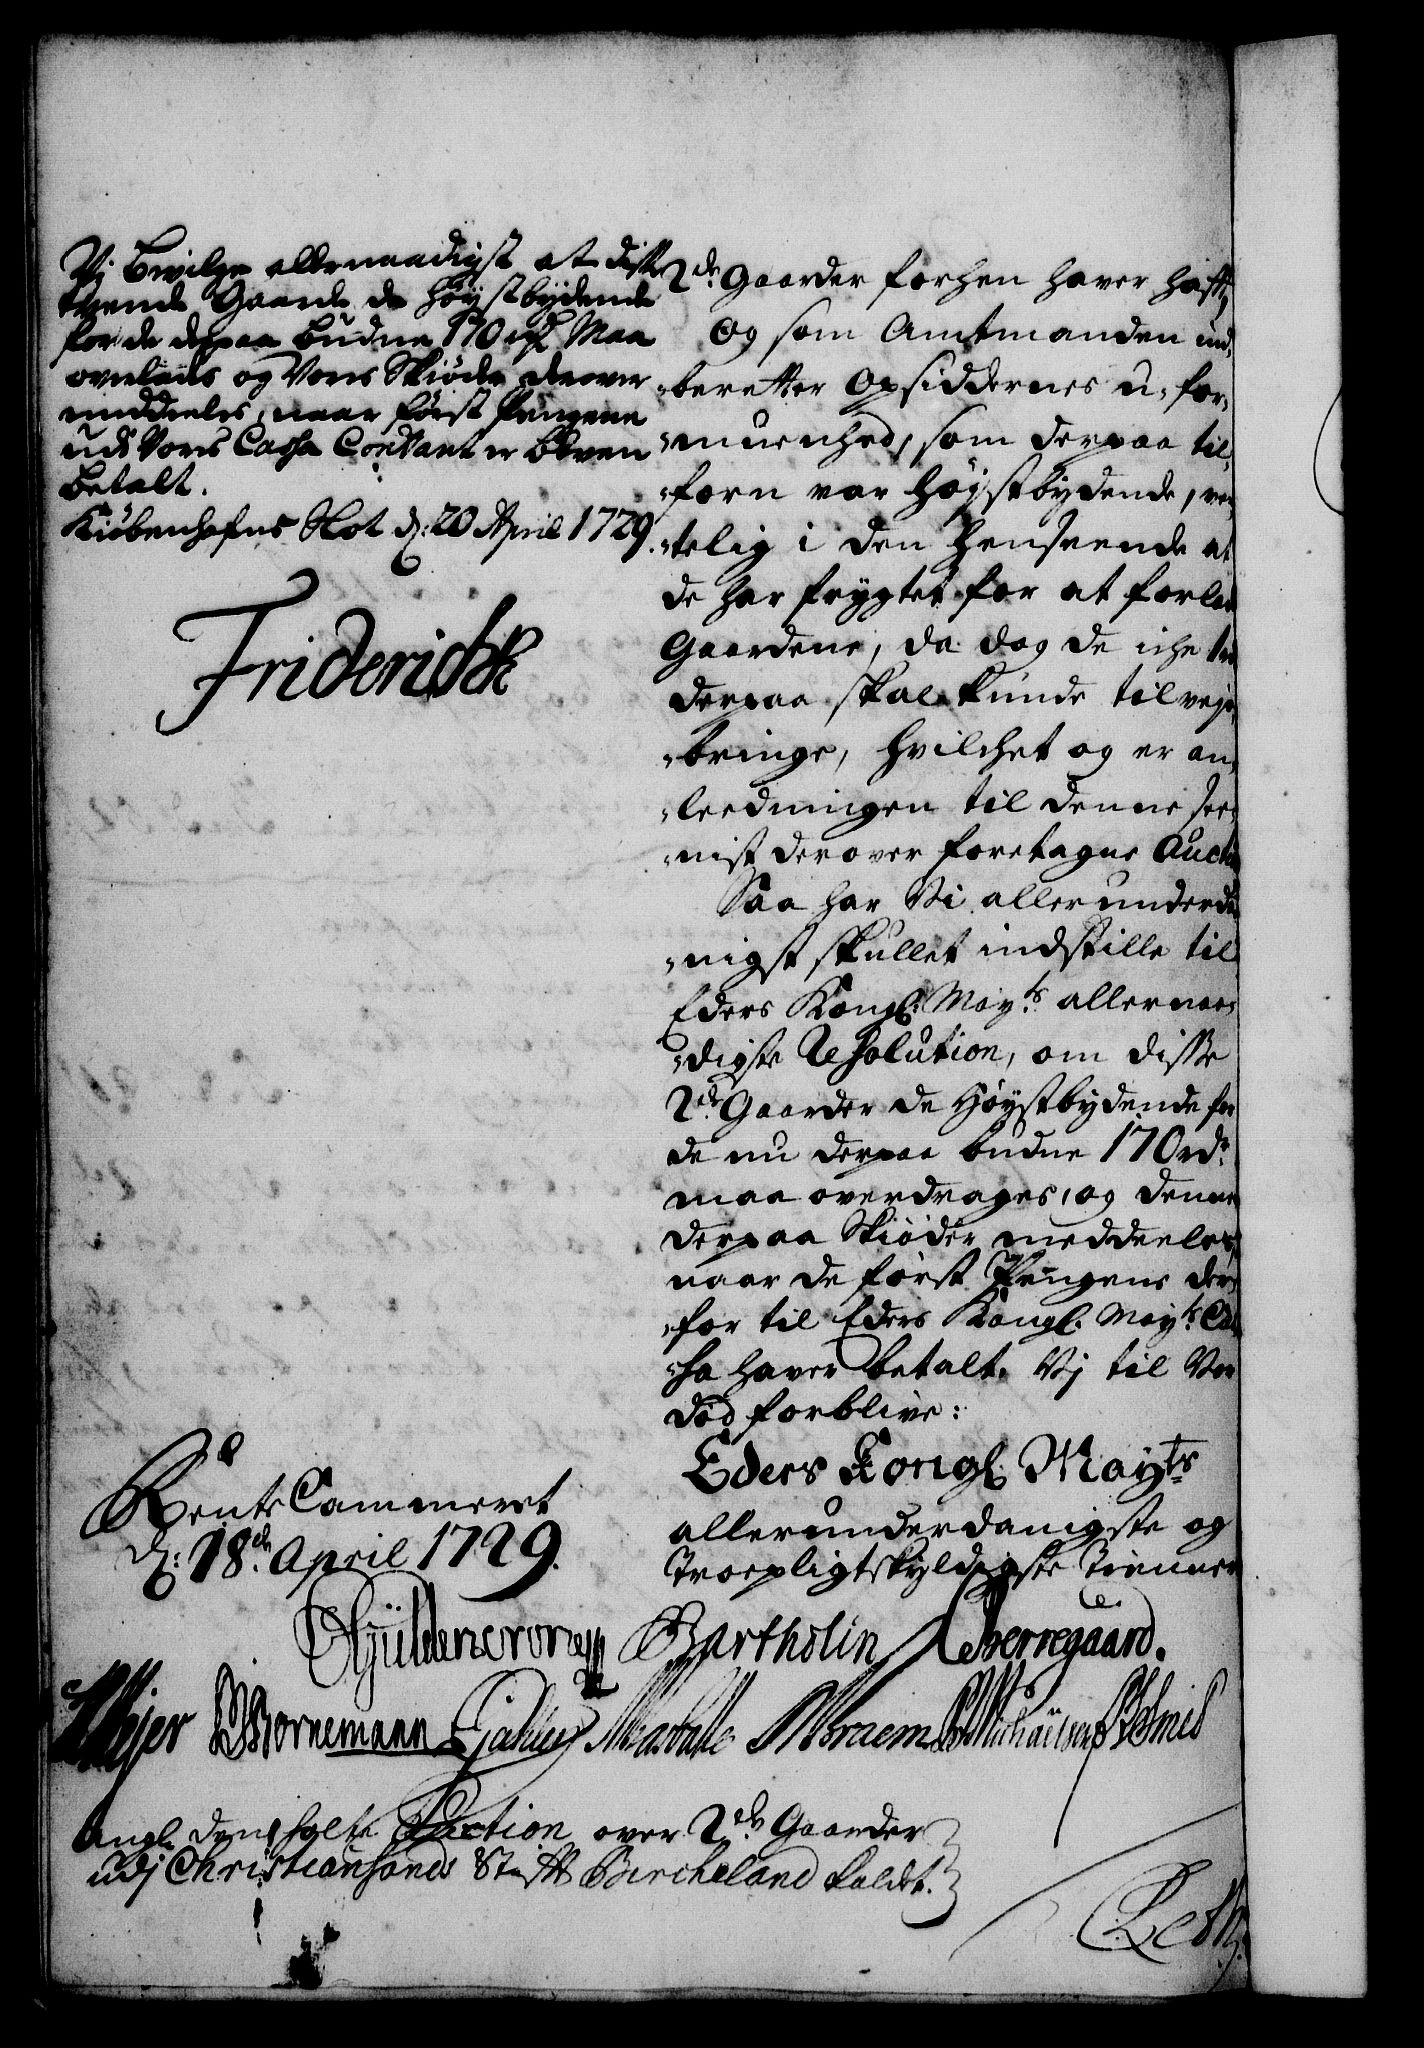 Vj Bevilge allernaadigst at disse
tvende Gaarde de Høystbydende
for de derpaa budne 170 rdr Maa
overlades og Vores Skiøde derover
meddeeles, naar først Pengene
udj Vores Cassa Contant er bleven
betalt.
Kiøbenhafns Slot d: 20 April 1729.
Friderich R
2de Gaarder forhen haver hafft,
Og som Amtmanden ind-
-beretter Opsiddernes u-for-
-muenhed, som derpaa til-
-forn var Høystbydende,
-telig i den henseende at
de har frygtet for at forlade
Gaardene, da dog de iche
derpaa skal kunde tilveje-
-bringe, hvilchet og er an-
-leedningen til denne see-
-nist derover foretagne Auction
Saa har Vi allerunderda-
-nigst skullet indstille til
Eders Kongl: Mayts allernaa-
-digste Resolution, om disse
2de Gaarder de Høystbydende for
de nu derpaa budne 170 rdr
maa overdrages, og denne
derpaa Skiøder meddeeles,
naar de først Pengene der-
-for til Eders Kongl: Mayts Cas-
-sa haver betalt. Vj til Vor
død forblive:
Eders Kongl. Mayts
allerunderdanigste og
Troepligtskyldigste Tienner
Rente Cammeret
d: 18de April 1729.
Güldencrone Bartholin Berregaard.
Meyer Bornemann
Angl. den holte Auction over 2de Gaarder
udj Christiansands Stift Bircheland kaldet.